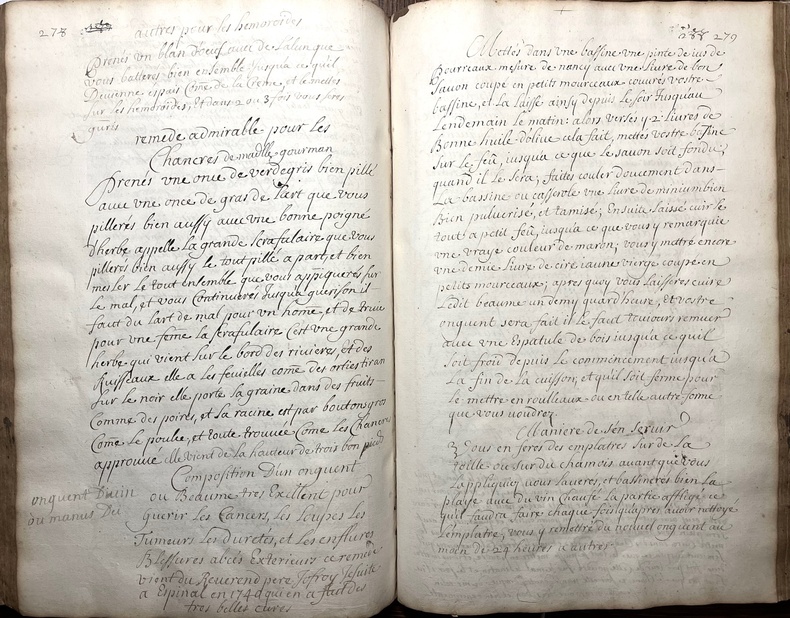 278
autres pour les hemoroides
Prenés un blan d'oeuf avec de L'alun que
vous batteres bien ensemble Jusqua ce quil
Devienne espais Come de la Creme, et le mettes
sur les hemoroides, et dans 2 ou 3 fois vous seres
queris
remede admirable pour les
Chancres de madlle gourman
Prenés vne once de verdegris bien pillé
avec vne once de gras de Lart que vous
pillerés bien aussy avec vne bonne poigné
d'herbe appellé la grande scrafulaire que vous
pillerés bien aussy le tout pillé a part, et bien
mesler Le tout ensemble que vous appliquerés sur
Le mal, et vous Continuerés Jusqua guerison il
faut du Lart de mal pour un home, et de truie
pour vne feme la scrafulaire C'est vne grande
herbe qui vient sur le bord des rivieres, et des
Ruisseaux elle a les feuielles come des orties tiran
sur le noir elle porte sa graine dans des fruits
Comme des poires, et sa racine est par boutons gros
Come le poulce, et toute trouuee Come les Chancres
approuvé elle vient de la hauteur de trois bon pieds
Composition D'un onguent
onguent Divin
ou manus Dei
ou Beaume tres Exellent pour
guerir Les Cancers, Les Loupes Les
Tumeurs Les Duretés, et Les enflures
Blessures abcés Exterieurs ce remede
vient du Reverend pere Jofroy Jesuite
a Espinal en 174 qui en a fact des
tres belles cures
279
Mettes dans vne bassine vne pinte de jus de
Pourreaux mesure de nancy avec vne Livre de bon
Savon coupé en petits mourceaux couvrés vostre
bassine, et La Laissé ainsy depuis Le soir Jusquau
Lendemain Le matin: alors versés y 2 Livres de
Bonne huile d'olive cela fait, mettés vostre bassine
Sur Le feü, jusqu'a ce que le savon soit fondu;
quand il Le sera; faittes couler doucement dans
La bassine ou casserole vne Livre de minium bien
Bien pulverisé, et tamisé; Ensuite Laissé cuir le
tout a petit feü, jusqu'a ce que vous y remarquié
vne vraye couleur de maron; vous y mettré encore
vne demie Livre de cire iaune vierge coupé en
petits mourceaux; apres quoy vous Laisserés cuire
Ledit beaume un demy quard heure, Et vostre
onguent sera fait il Le faut toujours remuer
avec vne Espatule de bois jusqu'a ce quil
soit froid depuis Le commencement jusqu'a
La fin de La cuisson; et qu'il soit ferme pour
Le mettre en roulleaux ou en telle autre forme
que vous voudrez.
Maniere de s'en servir
Vous en ferés des emplatres sur de La
toille ou sur du chamois avant que vous
L'appliquiez vous Laverés, et bassinerés bien La
playe avec du vin chaufé La partie affligé ce
qu'il faudra faire chaque fois qu'apres avoir nettoyé
L'emplatre, vous y remettré du nouvel onguent au
moin de 24 heures a autres